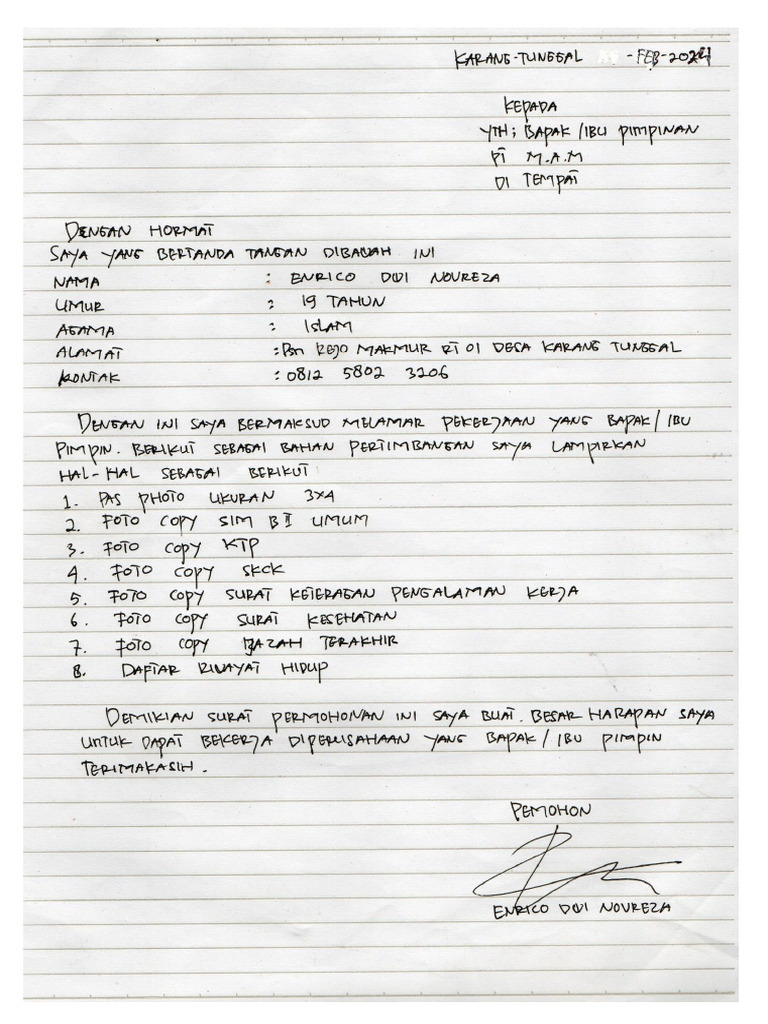 KARANG-TUNGGAL - FEB - 2024
KEPADA
YTH; BAPAK/IBU PIMPINAN
PT M.A.M
DI TEMPAT
DENGAN HORMAT
SAYA YANG BERTANDA TANGAN DIBAWAH INI
NAMA : ENRICO DWI NOVREZA
UMUR : 19 TAHUN
AGAMA : ISLAM
ALAMAT : REJO MAKMUR RT 01 DESA KARANG TUNGGAL
KONTAK : 0812 5802 3206
DENGAN INI SAYA BERMAKSUD MELAMAR PEKERJAAN YANG BAPAK/IBU
PIMPIN. BERIKUT SEBAGAI BAHAN PERTIMBANGAN SAYA LAMPIRKAN
HAL-HAL SEBAGAI BERIKUT
1. PAS PHOTO UKURAN 3X4
2. FOTO COPY SIM B II UMUM
3. FOTO COPY KTP
4. FOTO COPY SKCK
5. FOTO COPY SURAT KETERAGAN PENGALAMAN KERJA
6. FOTO COPY SURAT KESEHATAN
7. FOTO COPY IJAZAH TERAKHIR
8. DAFTAR RIWAYAT HIDUP
DEMIKIAN SURAT PERMOHONAN INI SAYA BUAT. BESAR HARAPAN SAYA
UNTUK DAPAT BEKERJA DIPERUSAHAAN YANG BAPAK/IBU PIMPIN
TERIMAKASIH.
PEMOHON
ENRICO DWI NOVREZA